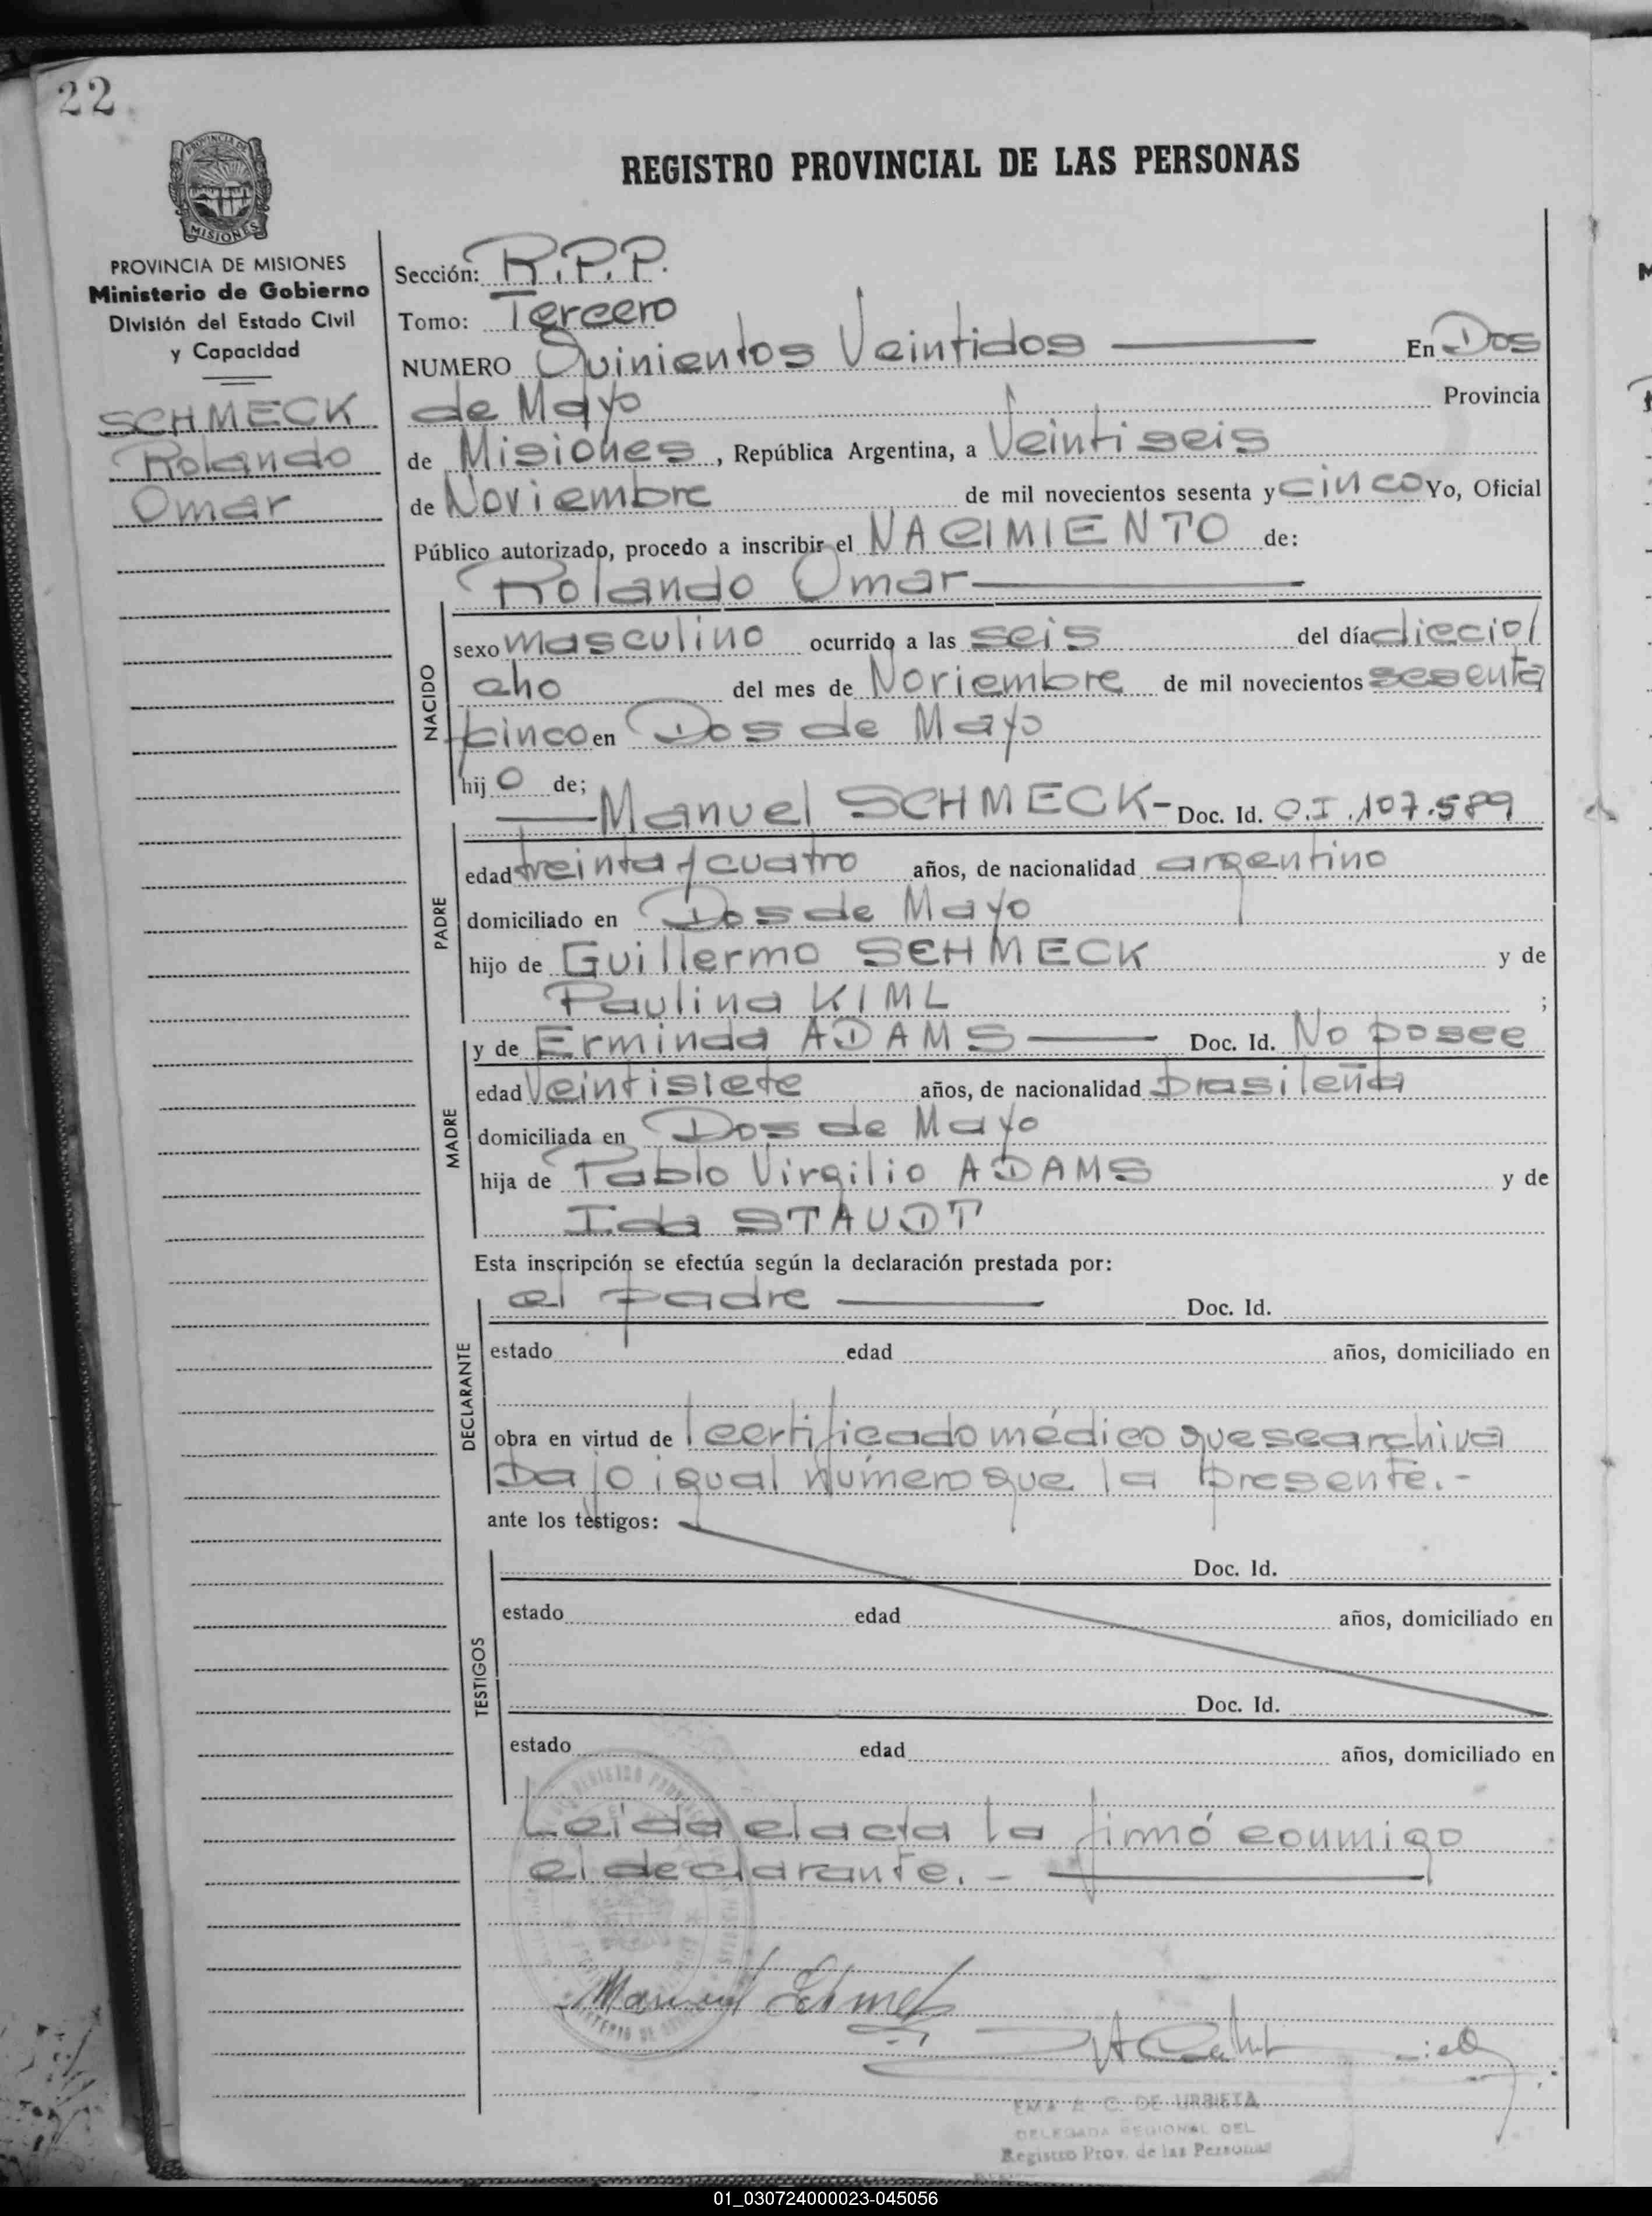 22
REGISTRO PROVINCIAL DE LAS PERSONAS
PROVINCIA DE
MISIONES
PROVINCIA DE MISIONES
Ministerio de Gobierno
División del Estado Civil
y Capacidad
SCHMECK
Rolando
Omar
Sección: R.P.P.
Tomo: Tercero
NUMERO Quinientos Veintidos — En Dos
de Mayo Provincia
de Misiones, República Argentina, a Veintiseis
de Noviembre de mil novecientos sesenta y cinco Yo, Oficial
Público autorizado, procedo a inscribir el NACIMIENTO de:
Rolando Omar —
NACIDO
sexo masculino ocurrido a las seis del día dieciol
cho del mes de Noviembre de mil novecientos sesenta
y cinco en Dos de Mayo
hijo de;
PADRE
— Manuel SCHMECK - Doc. Id. C.I. 107.589
edad treinta y cuatro años, de nacionalidad argentino
domiciliado en Dos de Mayo
hijo de Guillermo SCHMECK y de
Paulina KIML ;
MADRE
y de Erminda ADAMS — Doc. Id. No posee
edad Veintisiete años, de nacionalidad brasileña
domiciliada en Dos de Mayo
hija de Pablo Virgilio ADAMS y de
Ida STAUDT
Esta inscripción se efectúa según la declaración prestada por:
DECLARANTE
el padre — Doc. Id.
estado edad años, domiciliado en
obra en virtud de l certificado médico que se archiva
bajo igual número que la presente.-
ante los testigos:
TESTIGOS
Doc. Id.
estado edad años, domiciliado en
Doc. Id.
estado edad años, domiciliado en
Leida el acta la firmó conmigo
el declarante. - —
Manuel
EMA A C. DE URBIETA
DELEGADA REGIONAL DEL
Registro Prov. de las Personas
01_030724000023-045056